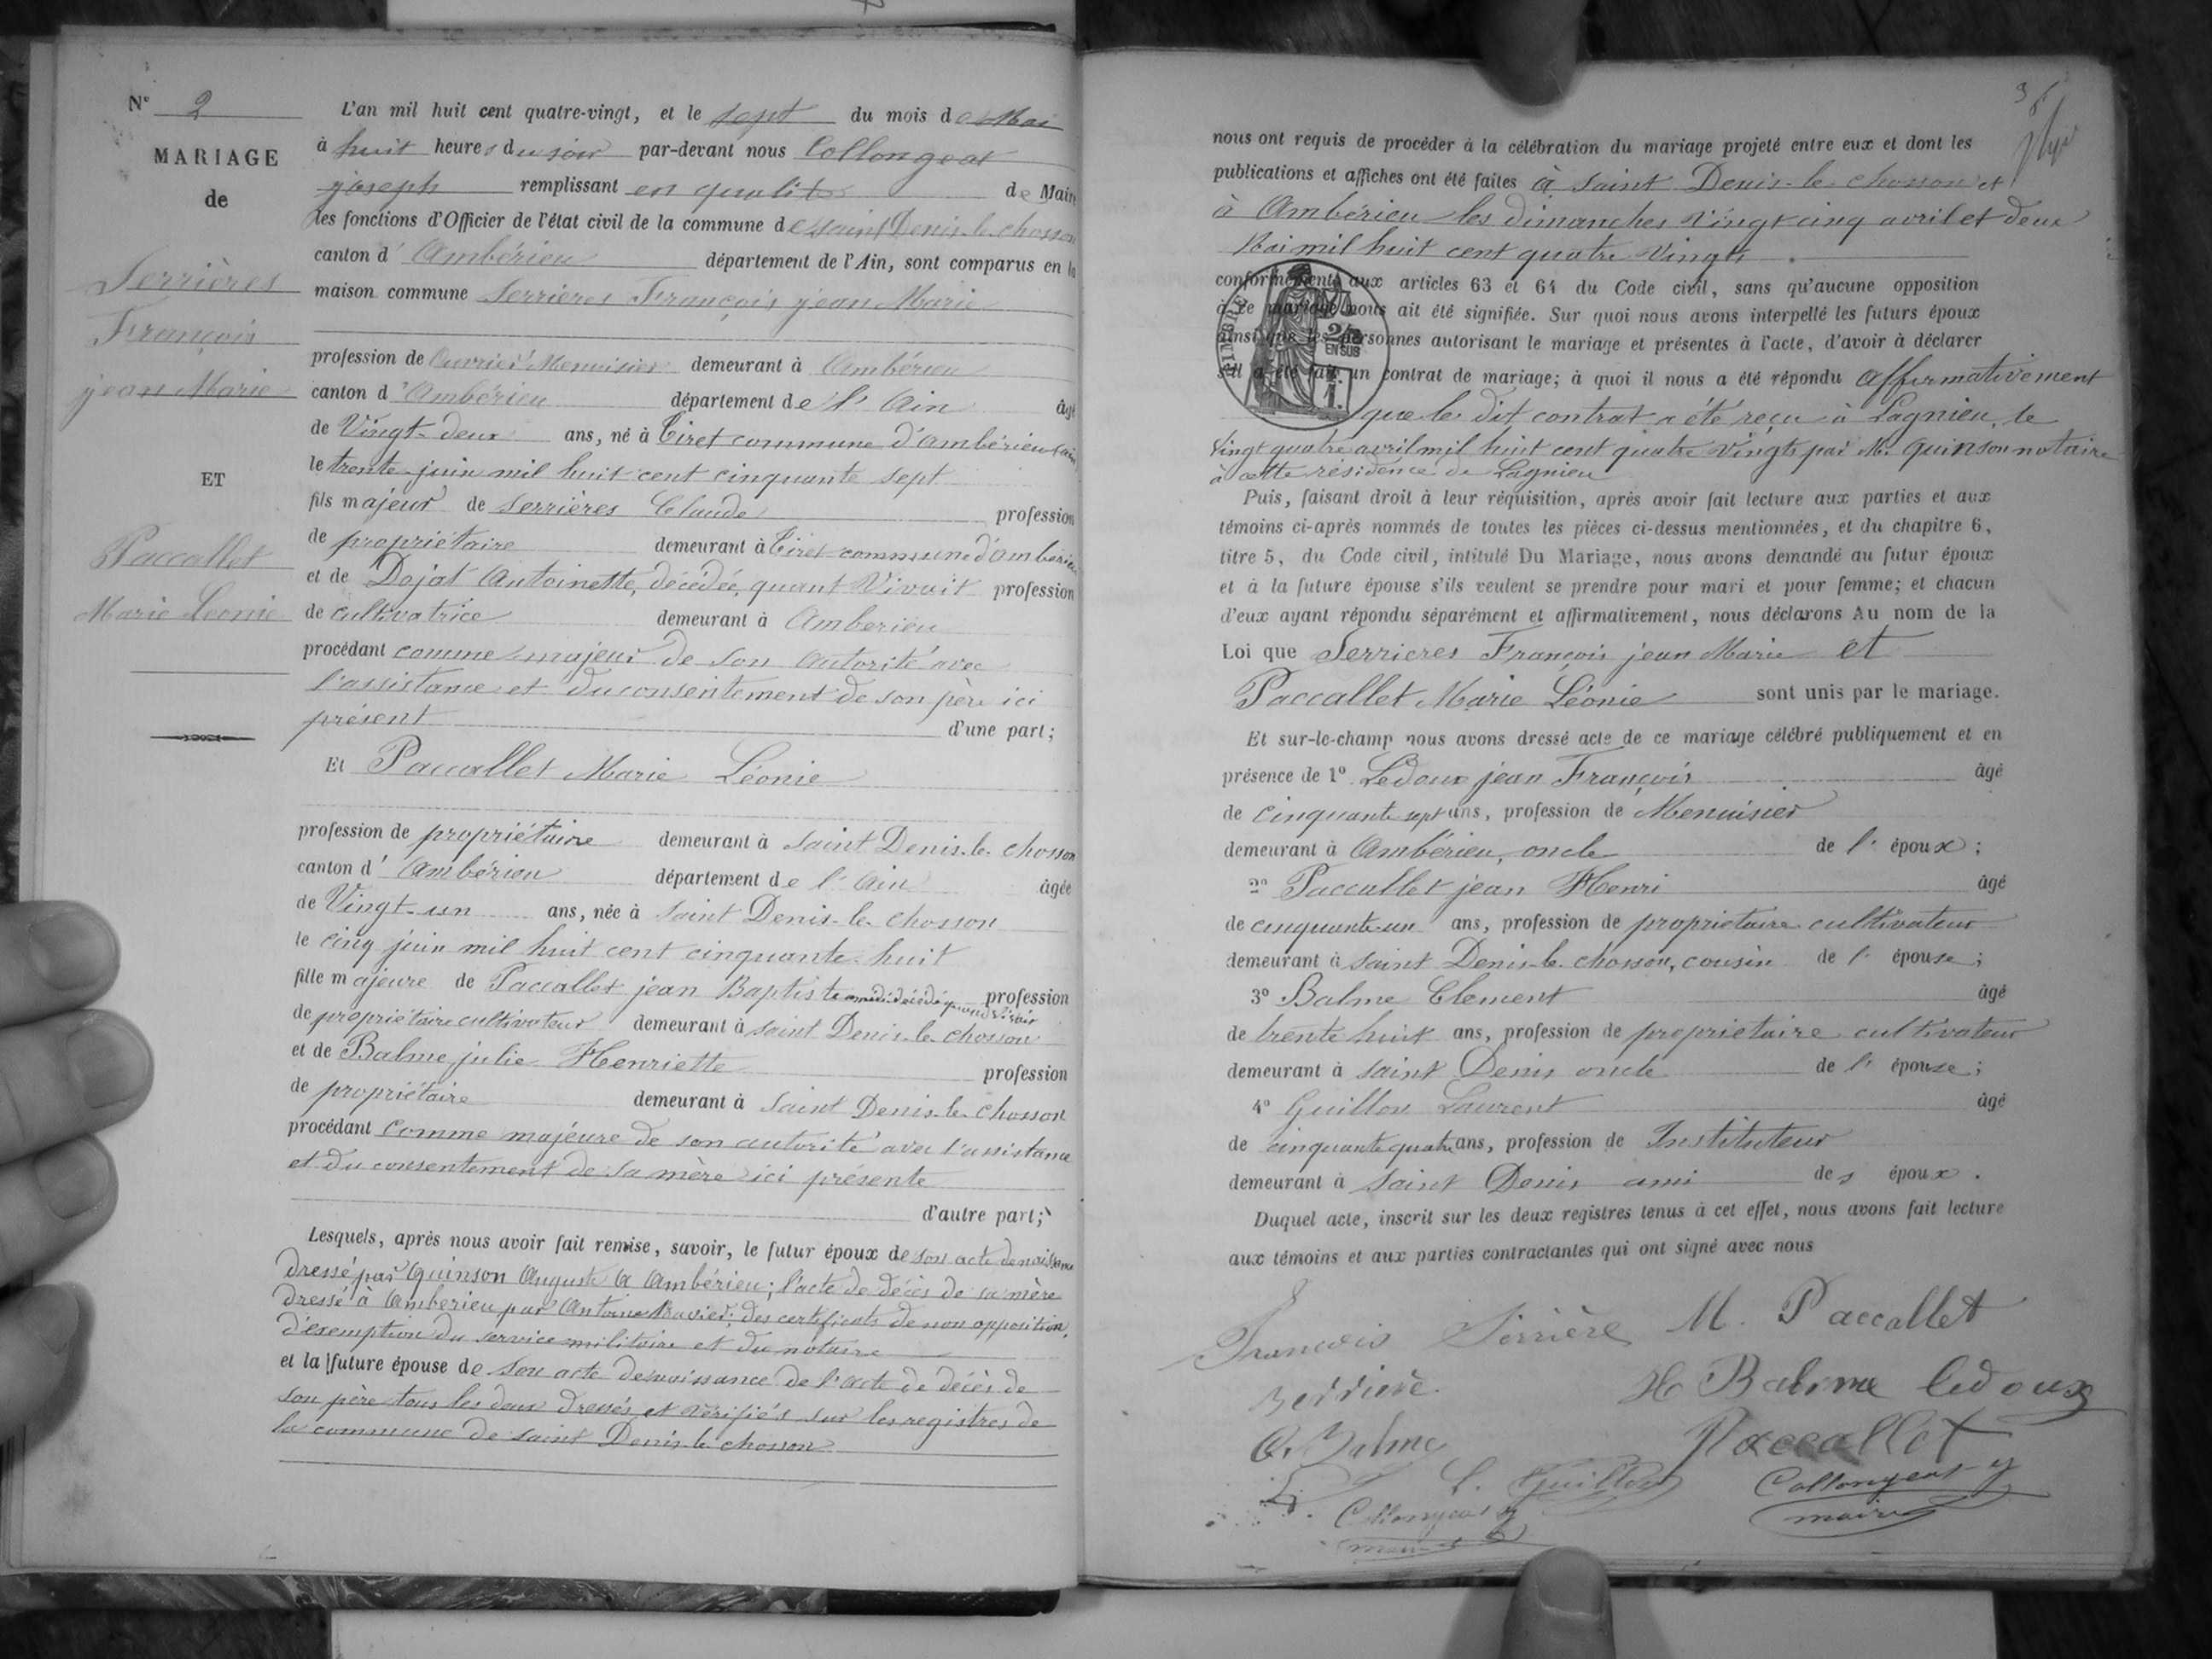 N° 2
MARIAGE
de
Serrières
François
jean Marie
ET
Paccallet
Marie Leonie
L'an mil huit cent quatre-vingt, et le sept du mois de Mai
à huit heures du soir par-devant nous Collongeat
joseph remplissant en qualité de Maire
les fonctions d'Officier de l'état civil de la commune de saint Denis-le-chosson
canton d' Ambérieu département de l'Ain, sont comparus en la
maison commune Serrieres François jean Marie
profession de Ouvrier Menuisier demeurant à Ambérieu
canton d'Ambérieu département de l'Ain âgé
de Vingt-deux ans, né à Tiret commune d'ambérieu (ain
le trente juin mil huit cent cinquante sept
fils majeur de Serrières Claude profession
de propriétaire demeurant à Tiret commune d'ambérieu
et de Dojat Antoinette, décédée, quant Vivait profession
de cultivatrice demeurant à Amberieu
procédant comme majeur de son autorité avec
l'assistance et du consentement de son père ici
présent d'une part;
Et Paccallet Marie Léonie
profession de propriétaire demeurant à saint Denis-le-chosson
canton d' Ambérieu département de l'Ain âgée
de Vingt-un ans, née à saint Denis-le-chosson
le cinq juin mil huit cent cinquante-huit
fille majeure de Paccallet jean Baptiste décédé quand vivait profession
de propriétaire cultivateur demeurant à saint Denis-le-chosson
et de Balme julie Henriette profession
de propriétaire demeurant à saint Denis-le-chosson
procédant comme majeure de son autorité avec l'assistance
et du consentement de sa mère ici présente
d'autre part;
Lesquels, après nous avoir fait remise, savoir, le futur époux de son acte de naissance
dressé par Quinson Auguste à Ambérieu; l'acte de décès de sa mère
dressé à Amberieu par Antoine Ravier; des certificats de non opposition,
d'exemption du service militaire et du notaire
et la future épouse de son acte de naissance de l'acte de décès de
son père tous les deux dressés et vérifiés sur les registres de
la commune de saint Denis-le-chosson
3
nous ont requis de procéder à la célébration du mariage projeté entre eux et dont les
publications et affiches ont été faites à saint Denis-le-chosson et
à Ambérieu les dimanches vingt cinq avril et deux
Mai mil huit cent quatre vingts
conformément aux articles 63 et 64 du Code civil, sans qu'aucune opposition
à ce mariage nous ait été signifiée. Sur quoi nous avons interpellé les futurs époux
ainsi que les personnes autorisant le mariage et présentes à l'acte, d'avoir à déclarer
s'il a été fait un contrat de mariage; à quoi il nous a été répondu affirmativement
TIMBRE
2/10
EN SUS
1.
que le dit contrat a été reçu à Lagnieu, le
vingt quatre avril mil huit cent quatre vingts par M. Quinson notaire
à cette résidence de Lagnieu
Puis, faisant droit à leur réquisition, après avoir fait lecture aux parties et aux
témoins ci-après nommés de toutes les pièces ci-dessus mentionnées, et du chapitre 6,
titre 5, du Code civil, intitulé Du Mariage, nous avons demandé au futur époux
et à la future épouse s'ils veulent se prendre pour mari et pour femme; et chacun
d'eux ayant répondu séparément et affirmativement, nous déclarons Au nom de la
Loi que Serrieres François jean Marie et
Paccallet Marie Léonie sont unis par le mariage.
Et sur-le-champ nous avons dressé acte de ce mariage célébré publiquement et en
présence de 1° Ledoux jean François âgé
de cinquante sept ans, profession de Menuisier
demeurant à Ambérieu, oncle de l' époux;
2° Paccallet jean Henri âgé
de cinquante-un ans, profession de proprietaire cultivateur
demeurant à saint Denis-le-chosson, cousin de l' épouse;
3° Balme Clement âgé
de trente huit ans, profession de proprietaire cultivateur
demeurant à saint Denis oncle de l' épouse;
4° Guillon Laurent âgé
de cinquante quatre ans, profession de Instituteur
demeurant à saint Denis ami des époux.
Duquel acte, inscrit sur les deux registres tenus à cet effet, nous avons fait lecture
aux témoins et aux parties contractantes qui ont signé avec nous
François Serrière M. Paccallet
Serriere H Balme Ledoux
C. Balme Paccallet
L. Guillon Collongeat j
maire
Collongeat j
maire